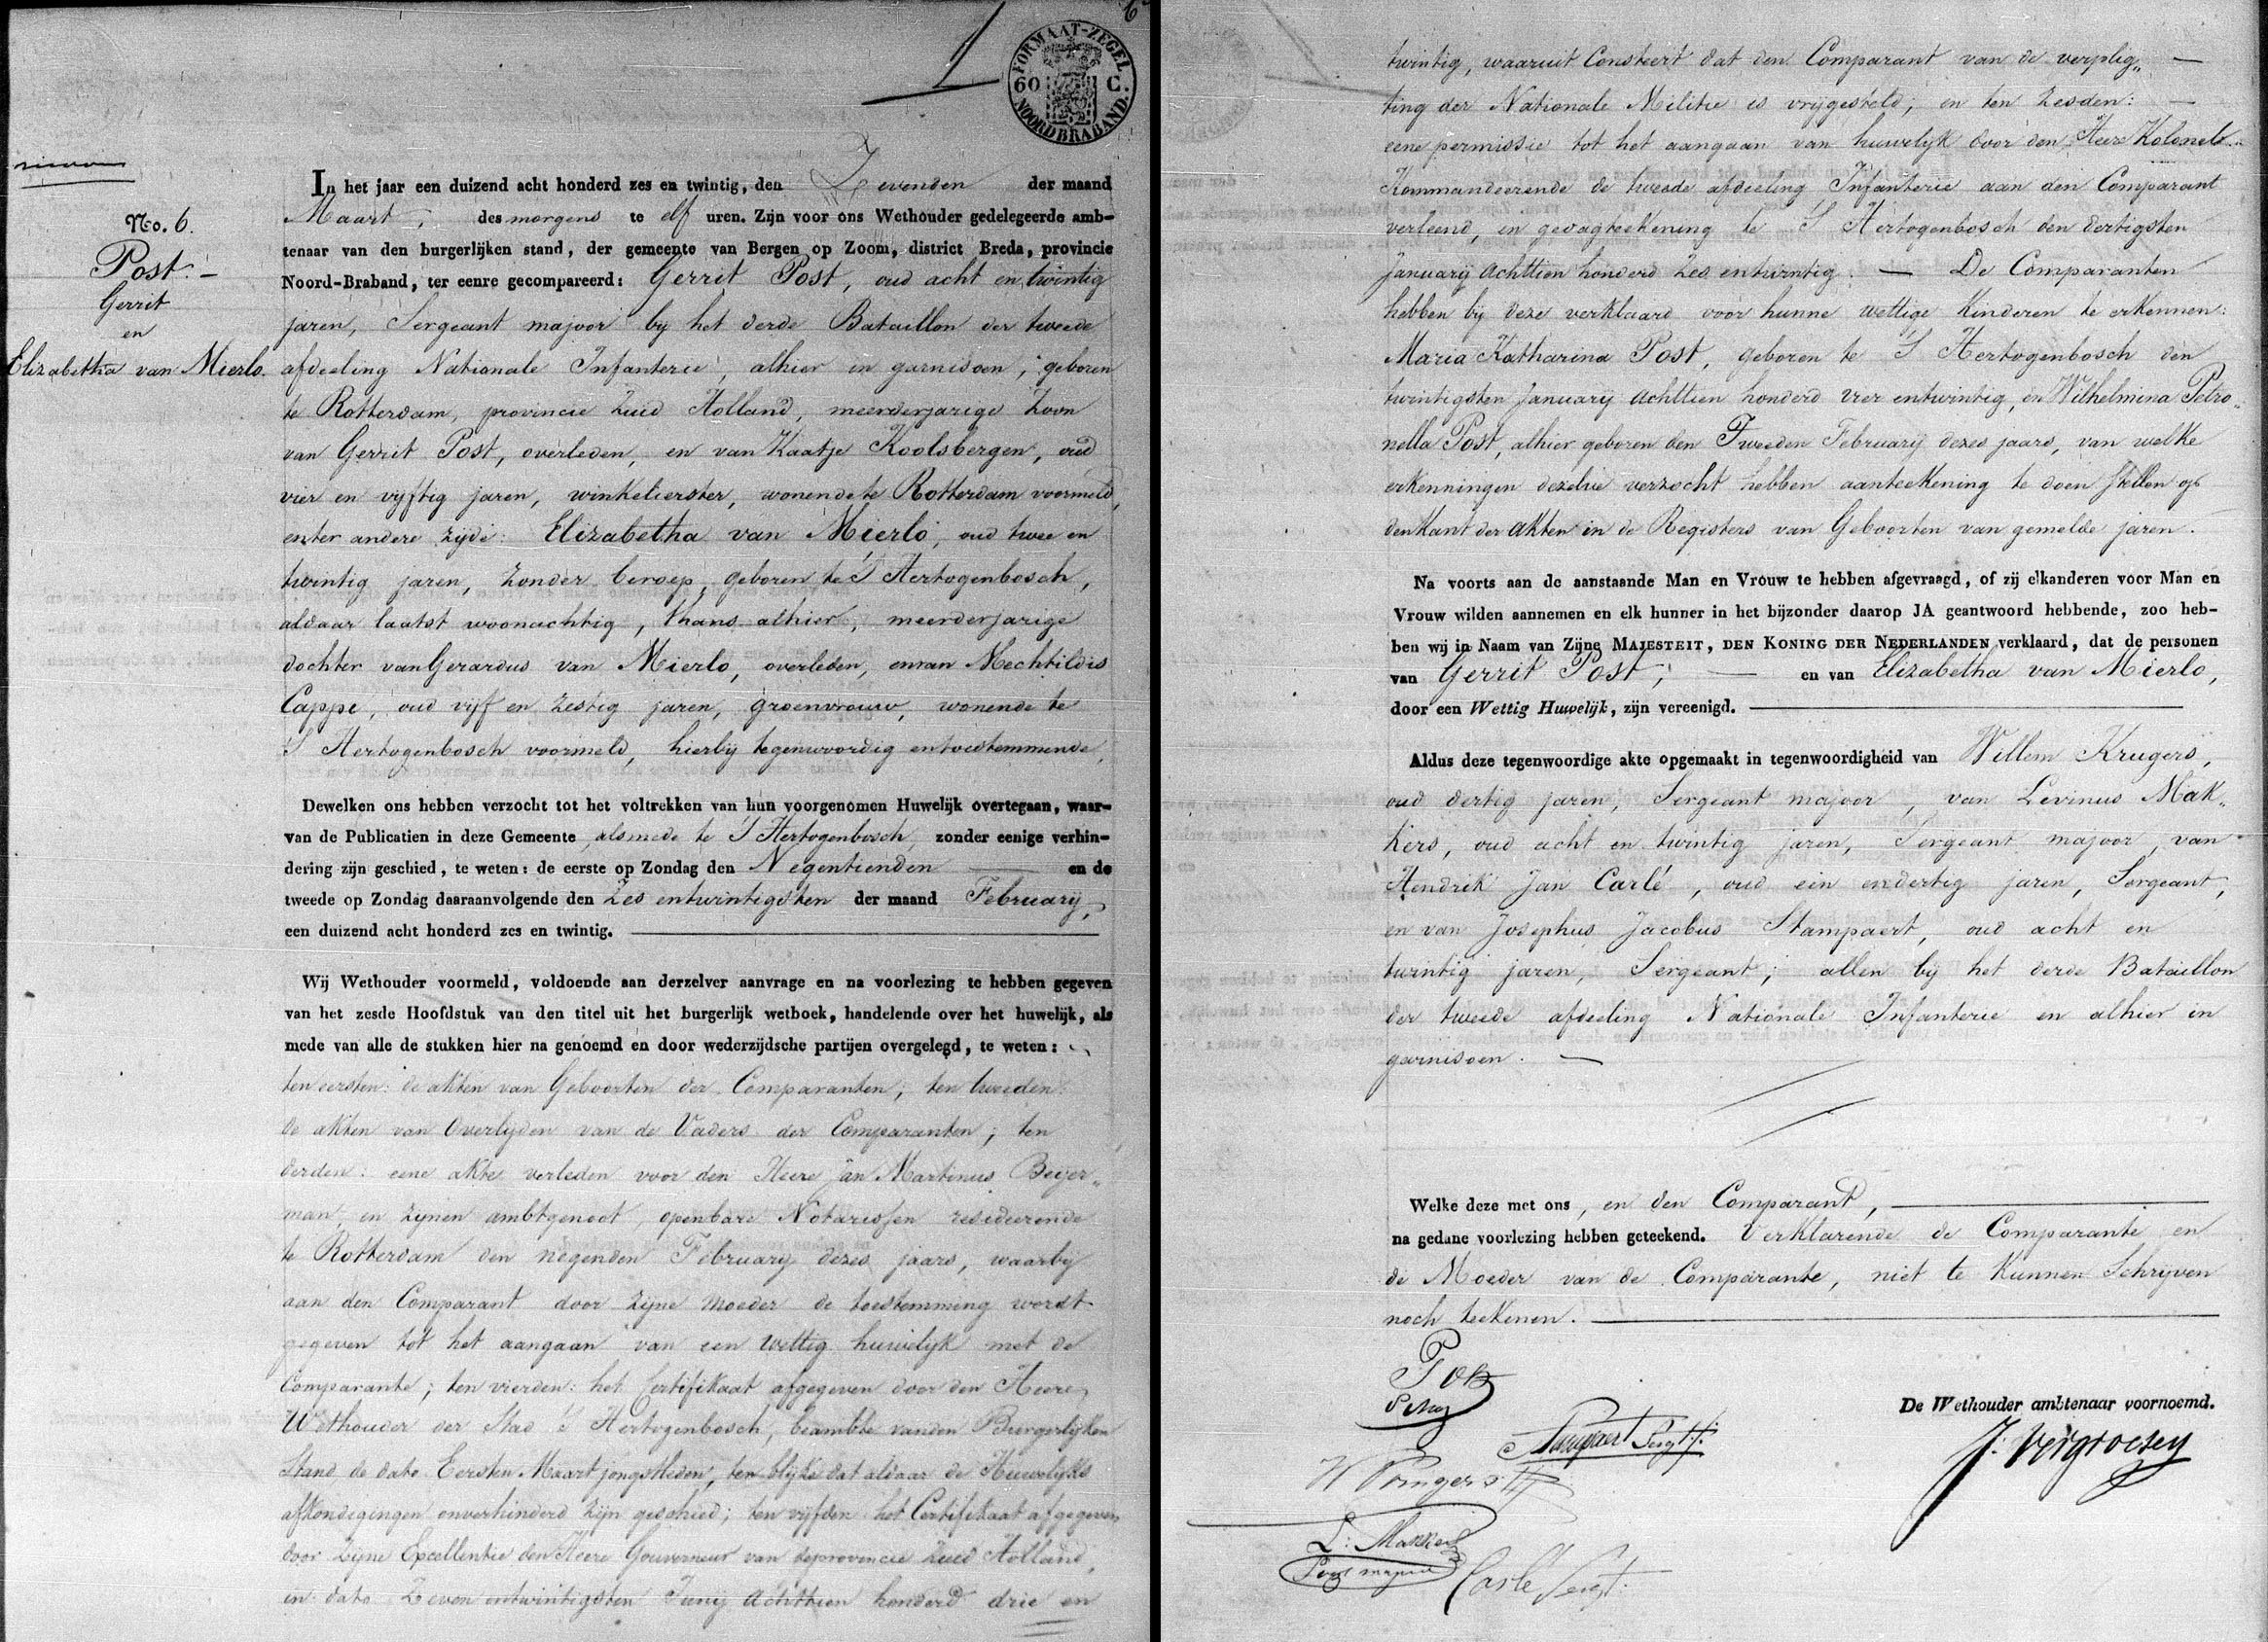 6
1
FORMAAT-ZEGEL
60 C.
NOORDBRABAND.
No. 6.
Post. –
Gerrit
en
Elizabetha van Mierlo.
In het jaar een duizend acht honderd zes en twintig, den Zevenden der maand
Maart, des morgens te elf uren. Zijn voor ons Wethouder gedelegeerde amb-
tenaar van den burgerlijken stand, der gemeente van Bergen op Zoom, district Breda, provincie
Noord-Braband, ter eenre gecompareerd: Gerrit Post, oud acht en twintig
jaren, Sergeant majoor by het derde Bataillon der tweede
afdeeling Nationale Infanterie, alhier in garnisoen, geboren
te Rotterdam, provincie Zuid Holland, meerderjarige Zoon
van Gerrit Post, overleden, en van Kaatje Koolsbergen, oud
vier en vyftig jaren, winkelierster, wonende te Rotterdam voormeld,
enter andere zyde: Elizabetha van Mierlo, oud twee en
twintig jaren, zonder beroep, geboren te S Hertogenbosch,
aldaar laatst woonachtig, thans alhier, meerderjarige
dochter van Gerardus van Mierlo, overleden, envan Mechtildis
Cappe, oud vijf en zestig jaren, groenvrouw, wonende te
S Hertogenbosch voormeld, hierby tegenwoordig entoestemmende,
Dewelken ons hebben verzocht tot het voltrekken van hun voorgenomen Huwelijk overtegaan, waar-
van de Publicatien in deze Gemeente, alsmede te S Hertogenbosch, zonder eenige verhin-
dering zijn geschied, te weten: de eerste op Zondag den Negentienden en de
tweede op Zondag daaraanvolgende den Zes entwintigsten der maand February,
een duizend acht honderd zes en twintig.
Wij Wethouder voormeld, voldoende aan derzelver aanvrage en na voorlezing te hebben gegeven
van het zesde Hoofdstuk van den titel uit het burgerlijk wetboek, handelende over het huwelijk, als
mede van alle de stukken hier na genoemd en door wederzijdsche partijen overgelegd, te weten:
ten eersten: de akten van Geboorten der Comparanten; ten tweeden:
de akten van Overlyden van de Vaders der Comparanten; ten
derden: eene akte verleden voor den Heere Jan Martinus Beyer„
man, en zynen ambtgenoot, openbare Notarissen resideerende
te Rotterdam den negenden February dezes jaars, waarby
aan den Comparant door zyne Moeder de toestemming wordt
gegeven tot het aangaan van een wettig huwelyk met de
Comparante; ten vierden: het Certifikaat afgegeven door den Heere
Wethouder der Stad S Hertogenbosch, beambte vanden Burgerlyken
Stand de dato Eersten Maart jongstleden, ten blyke dat aldaar de Huwelyks
afkondigingen onverhinderd zyn geschied; ten vyfden het Certifikaat afgegeven
door Zyne Excellentie den Heere Gouverneur van deprovincie Zuid Holland,
in dato Zeven entwintigsten Juny achttien honderd drie en
twintig, waaruit Consteert dat den Comparant van de verplig„
ting der Nationale Militie is vrygesteld; en ten Zesden:
eene permissie tot het aangaan van huwelyk door den Heere Kolonel
Kommandeerende de tweede afdeeling Infanterie aan den Comparant
verleend, in gedagteekening te S Hertogenbosch den dertigsten
January achttien honderd Zes entwintig. — De Comparanten
hebben by deze verklaard voor hunne wettige Kinderen te erkennen:
Maria Katharina Post, geboren te S Hertogenbosch den
twintigsten January achttien honderd vier entwintig, en Wilhelmina Petro„
nella Post, alhier geboren den Tweeden February dezes jaars, van welke
erkenningen dezelve verzocht hebben aanteekening te doen stellen op
den Kant der akten in de Registers van Geboorten van gemelde jaren.
Na voorts aan de aanstaande Man en Vrouw te hebben afgevraagd, of zij elkanderen voor Man en
Vrouw wilden aannemen en elk hunner in het bijzonder daarop JA geantwoord hebbende, zoo heb-
ben wij in Naam van Zijne MAJESTEIT, DEN KONING DER NEDERLANDEN verklaard, dat de personen
van Gerrit Post, en van Elizabetha van Mierlo,
door een Wettig Huwelijk, zijn vereenigd.
Aldus deze tegenwoordige akte opgemaakt in tegenwoordigheid van Willem Krugers,
oud dertig jaren, Sergeant majoor, van Levinus Mak„
kers, oud acht en twintig jaren, Sergeant majoor, van
Hendrik Jan Carlé, oud een endertig jaren, Sergeant,
en van Josephus Jacobus Stampaert, oud acht en
twintig jaren, Sergeant; allen by het derde Bataillon
der tweede afdeeling Nationale Infanterie en alhier in
garnisoen.
Welke deze met ons, en den Comparant,
na gedane voorlezing hebben geteekend. Verklarende de Comparante en
de Moeder van de Comparante, niet te Kunnen Schryven
noch teekenen.
Post
De Wethouder ambtenaar voornoemd.
Stampaert Sergt:
J: Vergroesen
L: Makkers
Serg majoor
Carlé Sergt: